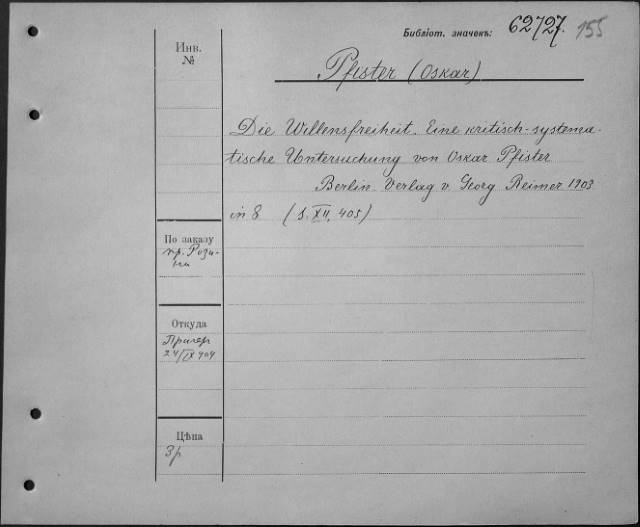 Библіот. значекъ: 62727. 155
Инв.
№
Pfister (Oskar)
Die Willensfreiheit. Eine kritisch-systema-
tische Untersuchung von Oskar Pfister
Berlin. Verlag v. Georg Reimer 1903
in 8 (S. XII, 405)
По заказу
пр. Рози-
на
Откуда
24/IX 904
Цѣна
3р